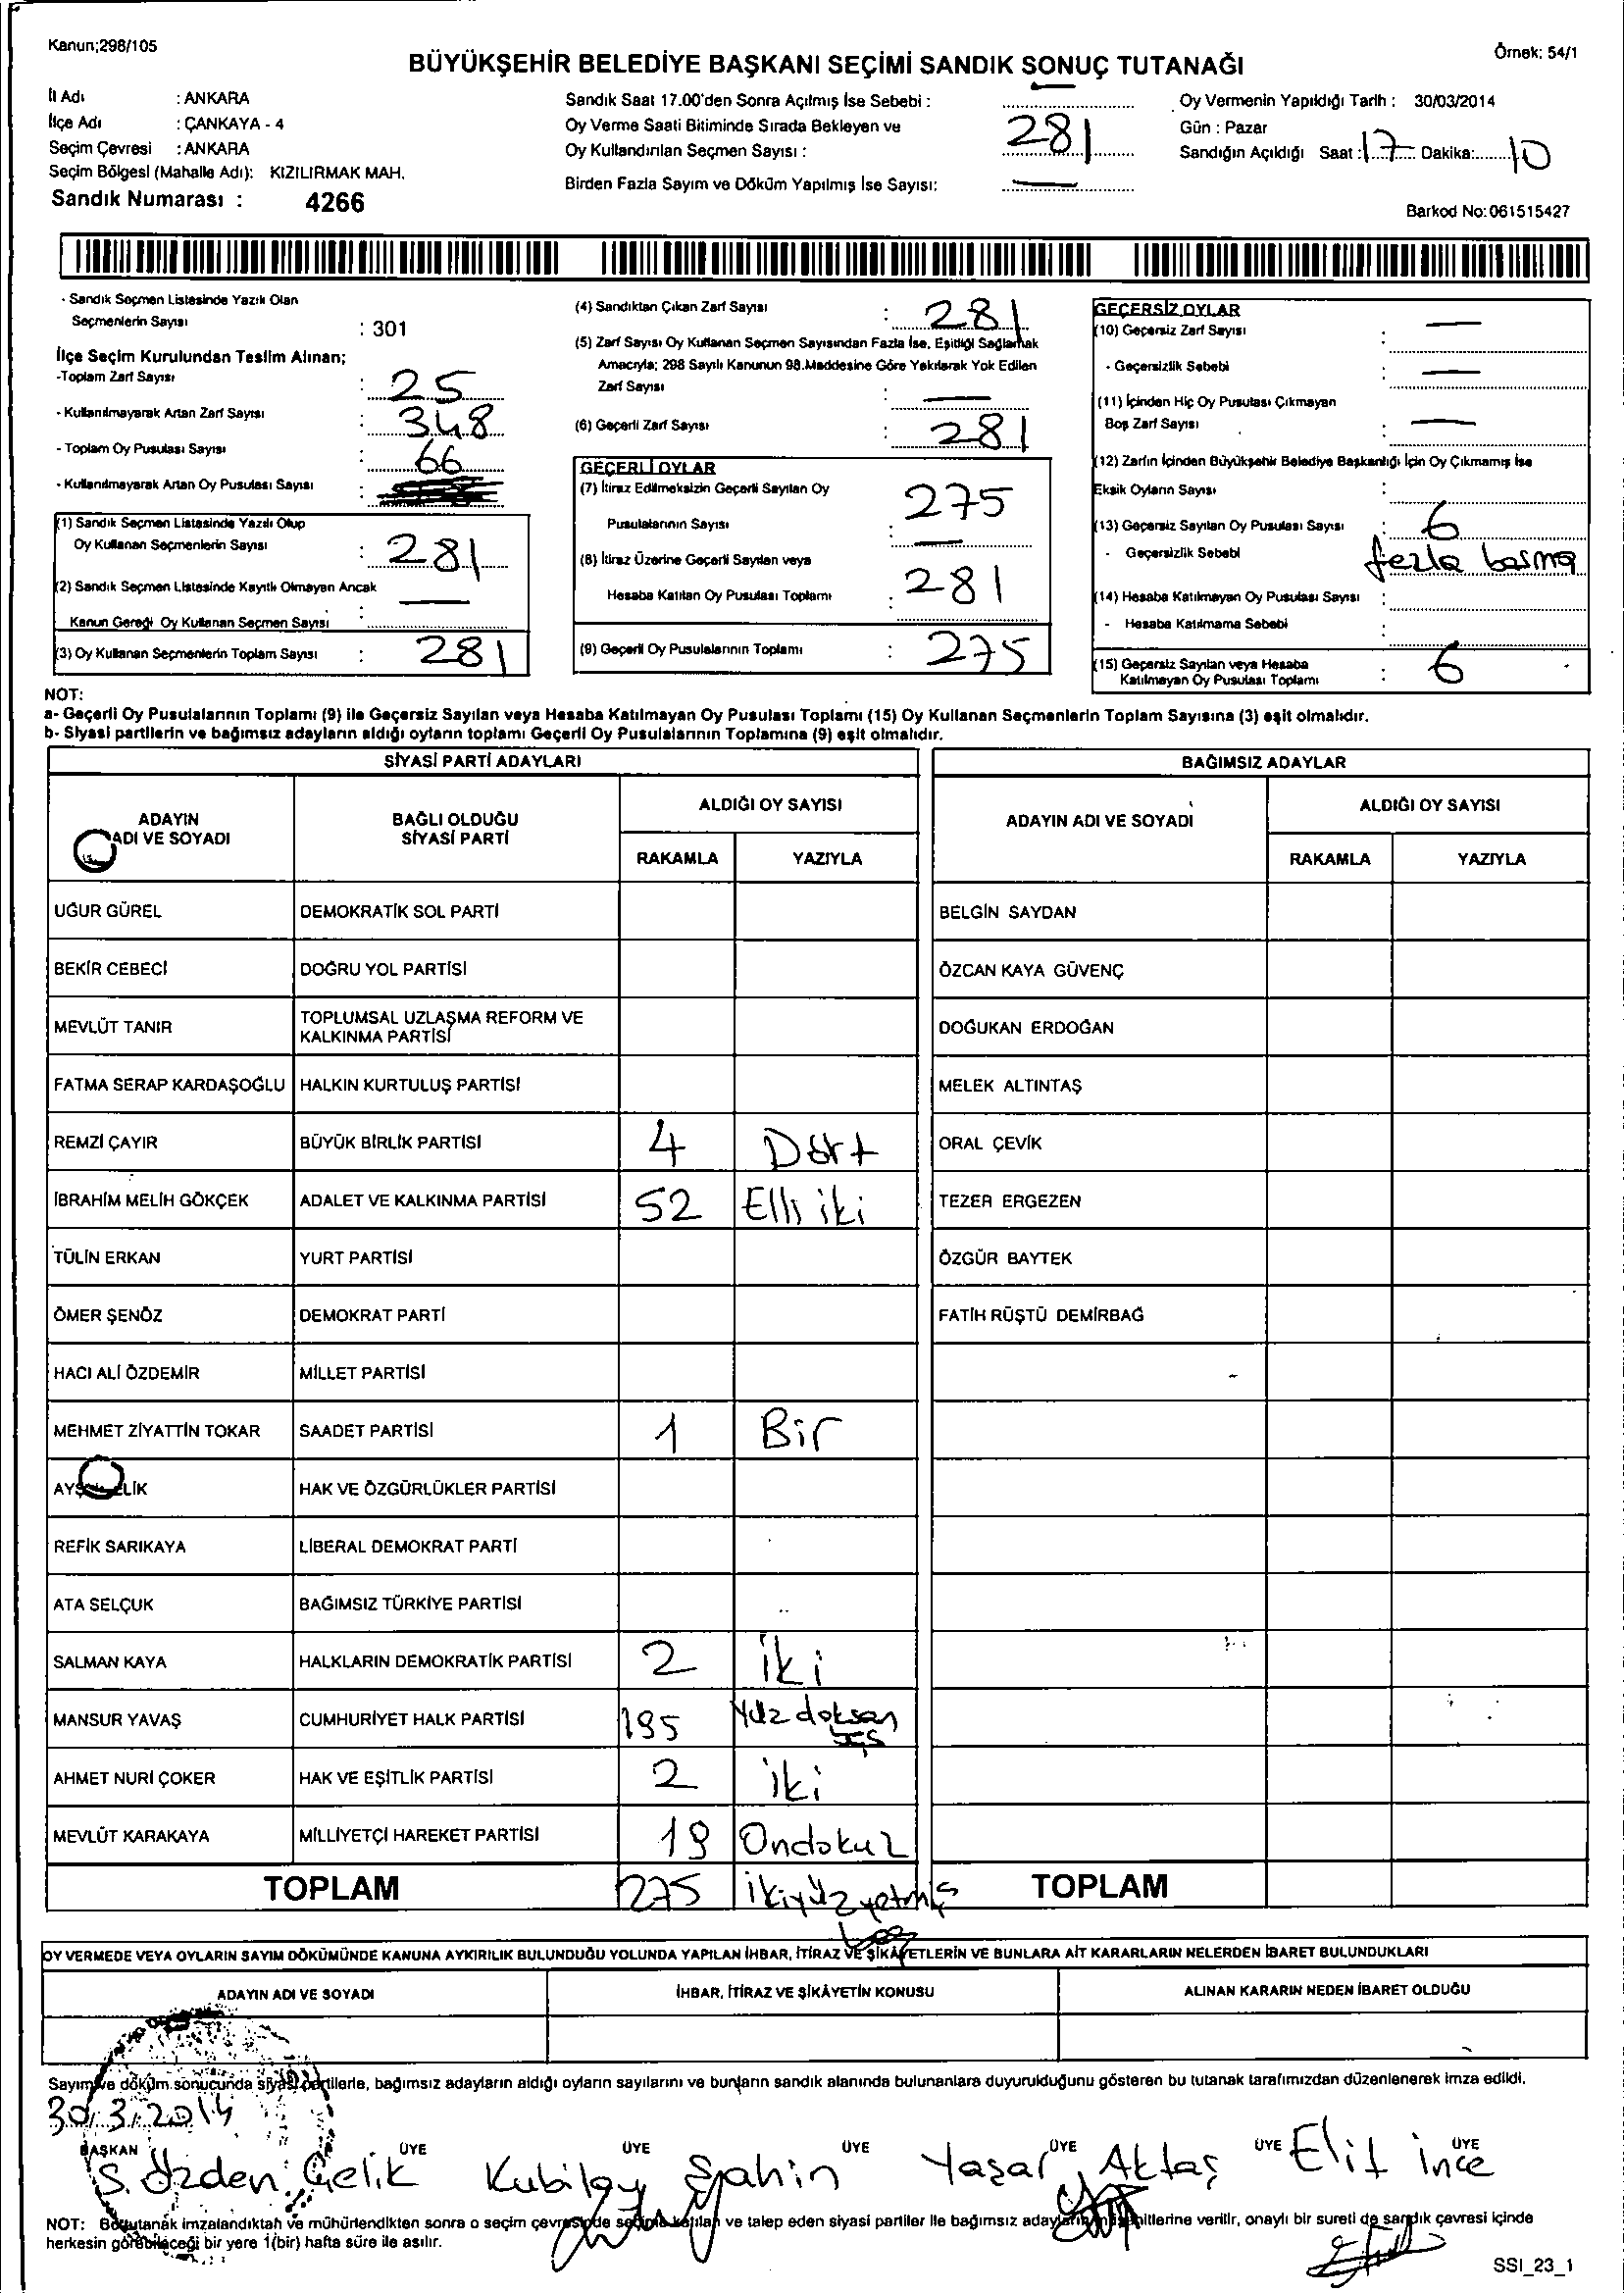 Kanun;298/105
Örnek: 54/1
BÜYÜKŞEHİR BELEDİYE BAŞKANI SEÇİMİ SANDIK SONUÇ TUTANAĞI
İl Adı : ANKARA
İlçe Adı : ÇANKAYA - 4
Seçim Çevresi : ANKARA
Seçim Bölgesi (Mahalle Adı): KIZILIRMAK MAH.
Sandık Numarası : 4266
Sandık Saat 17.00'den Sonra Açılmış İse Sebebi : —
Oy Verme Saati Bitiminde Sırada Bekleyen ve
Oy Kullandırılan Seçmen Sayısı : 281
Birden Fazla Sayım ve Döküm Yapılmış İse Sayısı: —
Oy Vermenin Yapıldığı Tarih : 30/03/2014
Gün : Pazar
Sandığın Açıldığı Saat : 17 Dakika: 10
Barkod No: 061515427
- Sandık Seçmen Listesinde Yazılı Olan
Seçmenlerin Sayısı : 301
İlçe Seçim Kurulundan Teslim Alınan;
-Toplam Zarf Sayısı : 25
- Kullanılmayarak Artan Zarf Sayısı : 348
- Toplam Oy Pusulası Sayısı : 66
- Kullanılmayarak Artan Oy Pusulası Sayısı :
(1) Sandık Seçmen Listesinde Yazılı Olup
Oy Kullanan Seçmenlerin Sayısı : 281
(2) Sandık Seçmen Listesinde Kayıtlı Olmayan Ancak
Kanun Gereği Oy Kullanan Seçmen Sayısı : —
(3) Oy Kullanan Seçmenlerin Toplam Sayısı : 281
(4) Sandıktan Çıkan Zarf Sayısı : 281
(5) Zarf Sayısı Oy Kullanan Seçmen Sayısından Fazla İse, Eşitliği Sağlamak
Amacıyla; 298 Sayılı Kanunun 98.Maddesine Göre Yakılarak Yok Edilen
Zarf Sayısı : —
(6) Geçerli Zarf Sayısı : 281
GEÇERLİ OYLAR
(7) İtiraz Edilmeksizin Geçerli Sayılan Oy
Pusulalarının Sayısı : 275
(8) İtiraz Üzerine Geçerli Sayılan veya —
Hesaba Katılan Oy Pusulası Toplamı : 281
(9) Geçerli Oy Pusulalarının Toplamı : 275
GEÇERSİZ OYLAR
(10) Geçersiz Zarf Sayısı : —
- Geçersizlik Sebebi : —
(11) İçinden Hiç Oy Pusulası Çıkmayan
Boş Zarf Sayısı : —
(12) Zarfın İçinden Büyükşehir Belediye Başkanlığı İçin Oy Çıkmamış İse
Eksik Oyların Sayısı :
(13) Geçersiz Sayılan Oy Pusulası Sayısı : 6
- Geçersizlik Sebebi fazla basma
(14) Hesaba Katılmayan Oy Pusulası Sayısı :
- Hesaba Katılmama Sebebi :
(15) Geçersiz Sayılan veya Hesaba
Katılmayan Oy Pusulası Toplamı : 6
NOT:
a- Geçerli Oy Pusulalarının Toplamı (9) ile Geçersiz Sayılan veya Hesaba Katılmayan Oy Pusulası Toplamı (15) Oy Kullanan Seçmenlerin Toplam Sayısına (3) eşit olmalıdır.
b- Siyasi partilerin ve bağımsız adayların aldığı oyların toplamı Geçerli Oy Pusulalarının Toplamına (9) eşit olmalıdır.
SİYASİ PARTİ ADAYLARI
ADAYIN ADI VE SOYADI BAĞLI OLDUĞU SİYASİ PARTİ ALDIĞI OY SAYISI
RAKAMLA YAZIYLA
UĞUR GÜREL DEMOKRATİK SOL PARTİ
BEKİR CEBECİ DOĞRU YOL PARTİSİ
MEVLÜT TANIR TOPLUMSAL UZLAŞMA REFORM VE KALKINMA PARTİSİ
FATMA SERAP KARDAŞOĞLU HALKIN KURTULUŞ PARTİSİ
REMZİ ÇAYIR BÜYÜK BİRLİK PARTİSİ 4 Dört
İBRAHİM MELİH GÖKÇEK ADALET VE KALKINMA PARTİSİ 52 Elli iki
TÜLİN ERKAN YURT PARTİSİ
ÖMER ŞENÖZ DEMOKRAT PARTİ
HACI ALİ ÖZDEMİR MİLLET PARTİSİ
MEHMET ZİYATTİN TOKAR SAADET PARTİSİ 1 Bir
HAK VE ÖZGÜRLÜKLER PARTİSİ
REFİK SARIKAYA LİBERAL DEMOKRAT PARTİ
ATA SELÇUK BAĞIMSIZ TÜRKİYE PARTİSİ
SALMAN KAYA HALKLARIN DEMOKRATİK PARTİSİ 2 iki
MANSUR YAVAŞ CUMHURİYET HALK PARTİSİ 195 Yüz doksan
AHMET NURİ ÇOKER HAK VE EŞİTLİK PARTİSİ 2 iki
MEVLÜT KARAKAYA MİLLİYETÇİ HAREKET PARTİSİ 19 Ondokuz
TOPLAM 275 ikiyüzyetmiş
beş
BAĞIMSIZ ADAYLAR
ADAYIN ADI VE SOYADI ALDIĞI OY SAYISI
RAKAMLA YAZIYLA
BELGİN SAYDAN
ÖZCAN KAYA GÜVENÇ
DOĞUKAN ERDOĞAN
MELEK ALTINTAŞ
ORAL ÇEVİK
TEZER ERGEZEN
ÖZGÜR BAYTEK
FATİH RÜŞTÜ DEMİRBAĞ
TOPLAM
OY VERMEDE VEYA OYLARIN SAYIM DÖKÜMÜNDE KANUNA AYKIRILIK BULUNDUĞU YOLUNDA YAPILAN İHBAR, İTİRAZ VE ŞİKÂYETLERİN VE BUNLARA AİT KARARLARIN NELERDEN İBARET BULUNDUKLARI
ADAYIN ADI VE SOYADI İHBAR, İTİRAZ VE ŞİKÂYETİN KONUSU ALINAN KARARIN NEDEN İBARET OLDUĞU
Sayım ve döküm sonucunda siyasi partilerle, bağımsız adayların aldığı oyların sayılarını ve bunların sandık alanında bulunanlara duyurulduğunu gösteren bu tutanak tarafımızdan düzenlenerek imza edildi.
30/3/2014
BAŞKAN ÜYE ÜYE ÜYE ÜYE ÜYE ÜYE
S. Özden Çelik Kubilay Şahin Yaşar Aktaş Elif ince
NOT: Bu tutanak imzalandıktan ve mühürlendikten sonra o seçim çevresinde seçime katılan ve talep eden siyasi partiler ile bağımsız adayların müşahitlerine verilir, onaylı bir sureti de sandık çevresi içinde
herkesin görebileceği bir yere 1(bir) hafta süre ile asılır.
SSI_23_1